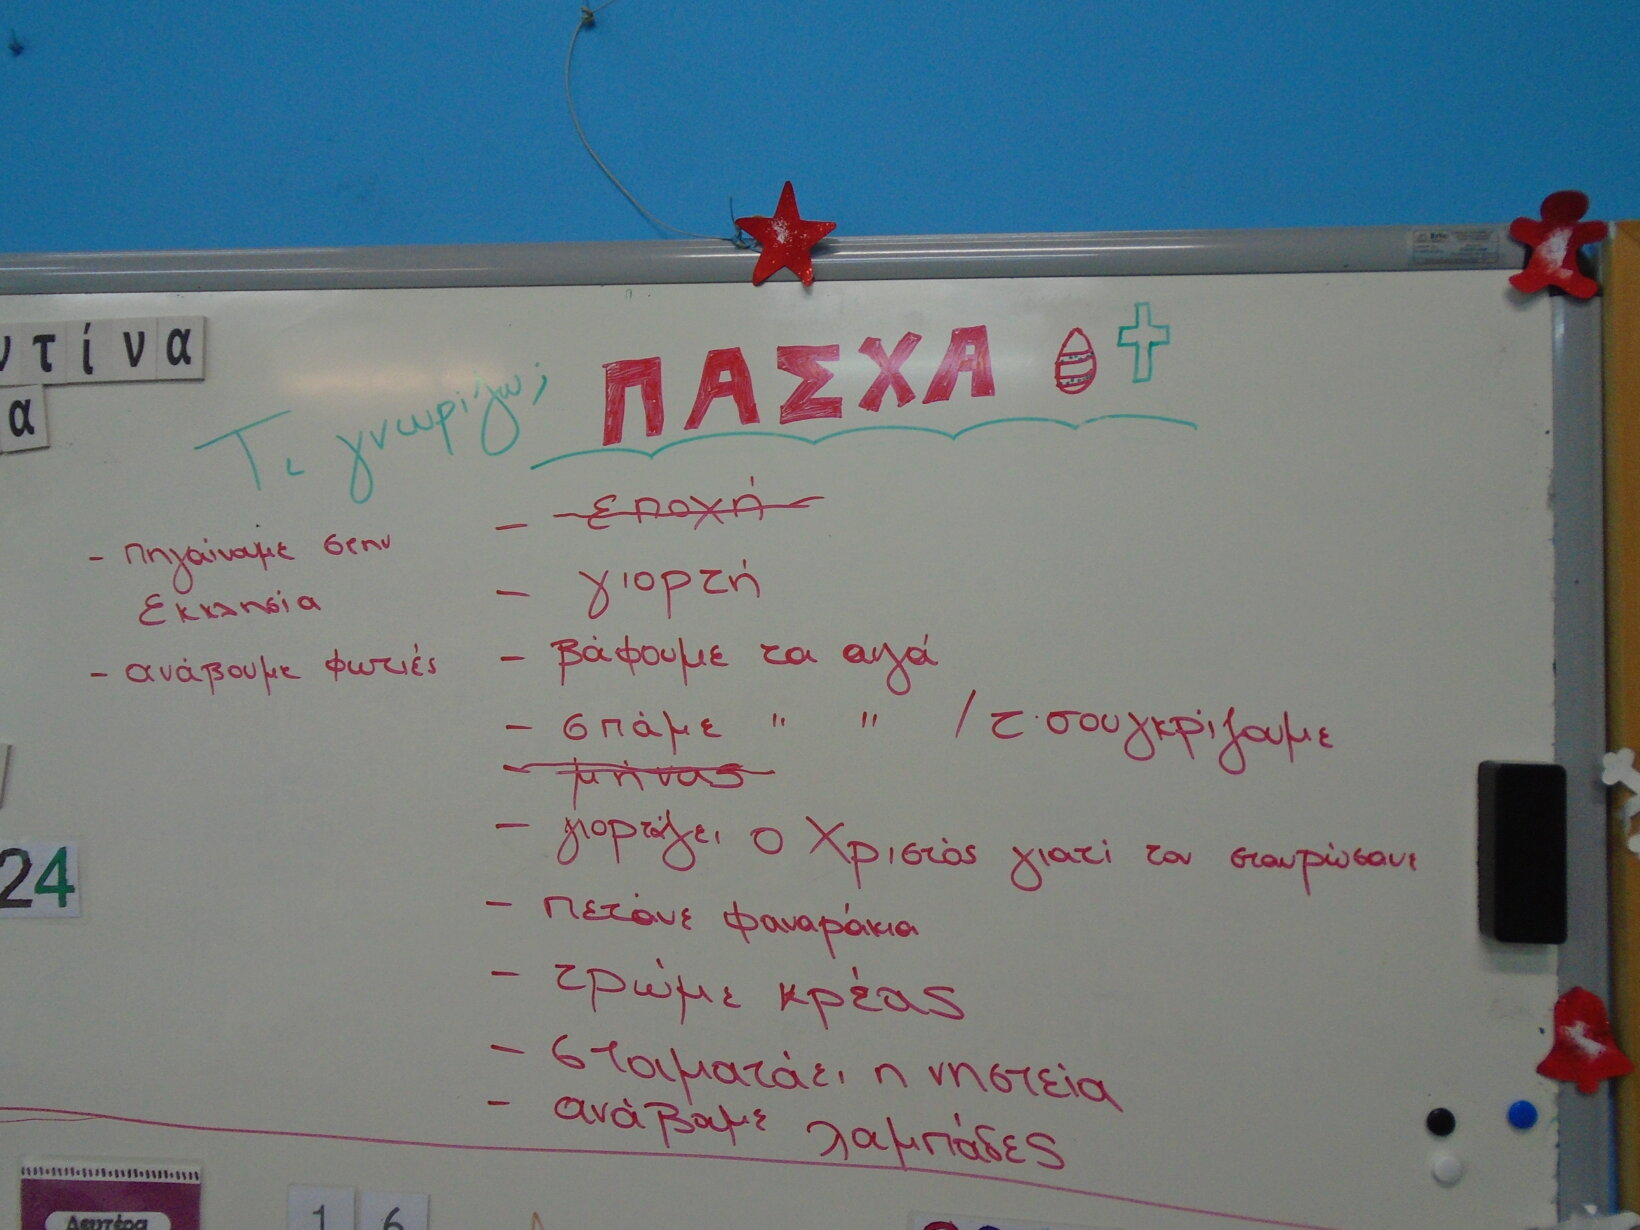 ντίνα
α
Τι γνωρίζω;
ΠΑΣΧΑ
- πηγαίναμε στην
εκκλησία
- ανάβουμε φωτιές
- εποχή
- γιορτή
- βάφουμε τα αυγά
- σπάμε " " / τσουγκρίζουμε
- μήνας
- γιορτάζει ο Χριστός γιατί τον σταυρώσανε
- πετάνε φαναράκια
- τρώμε κρέας
- σταματάει η νηστεία
- ανάβαμε λαμπάδες
24
Δευτέρα
16